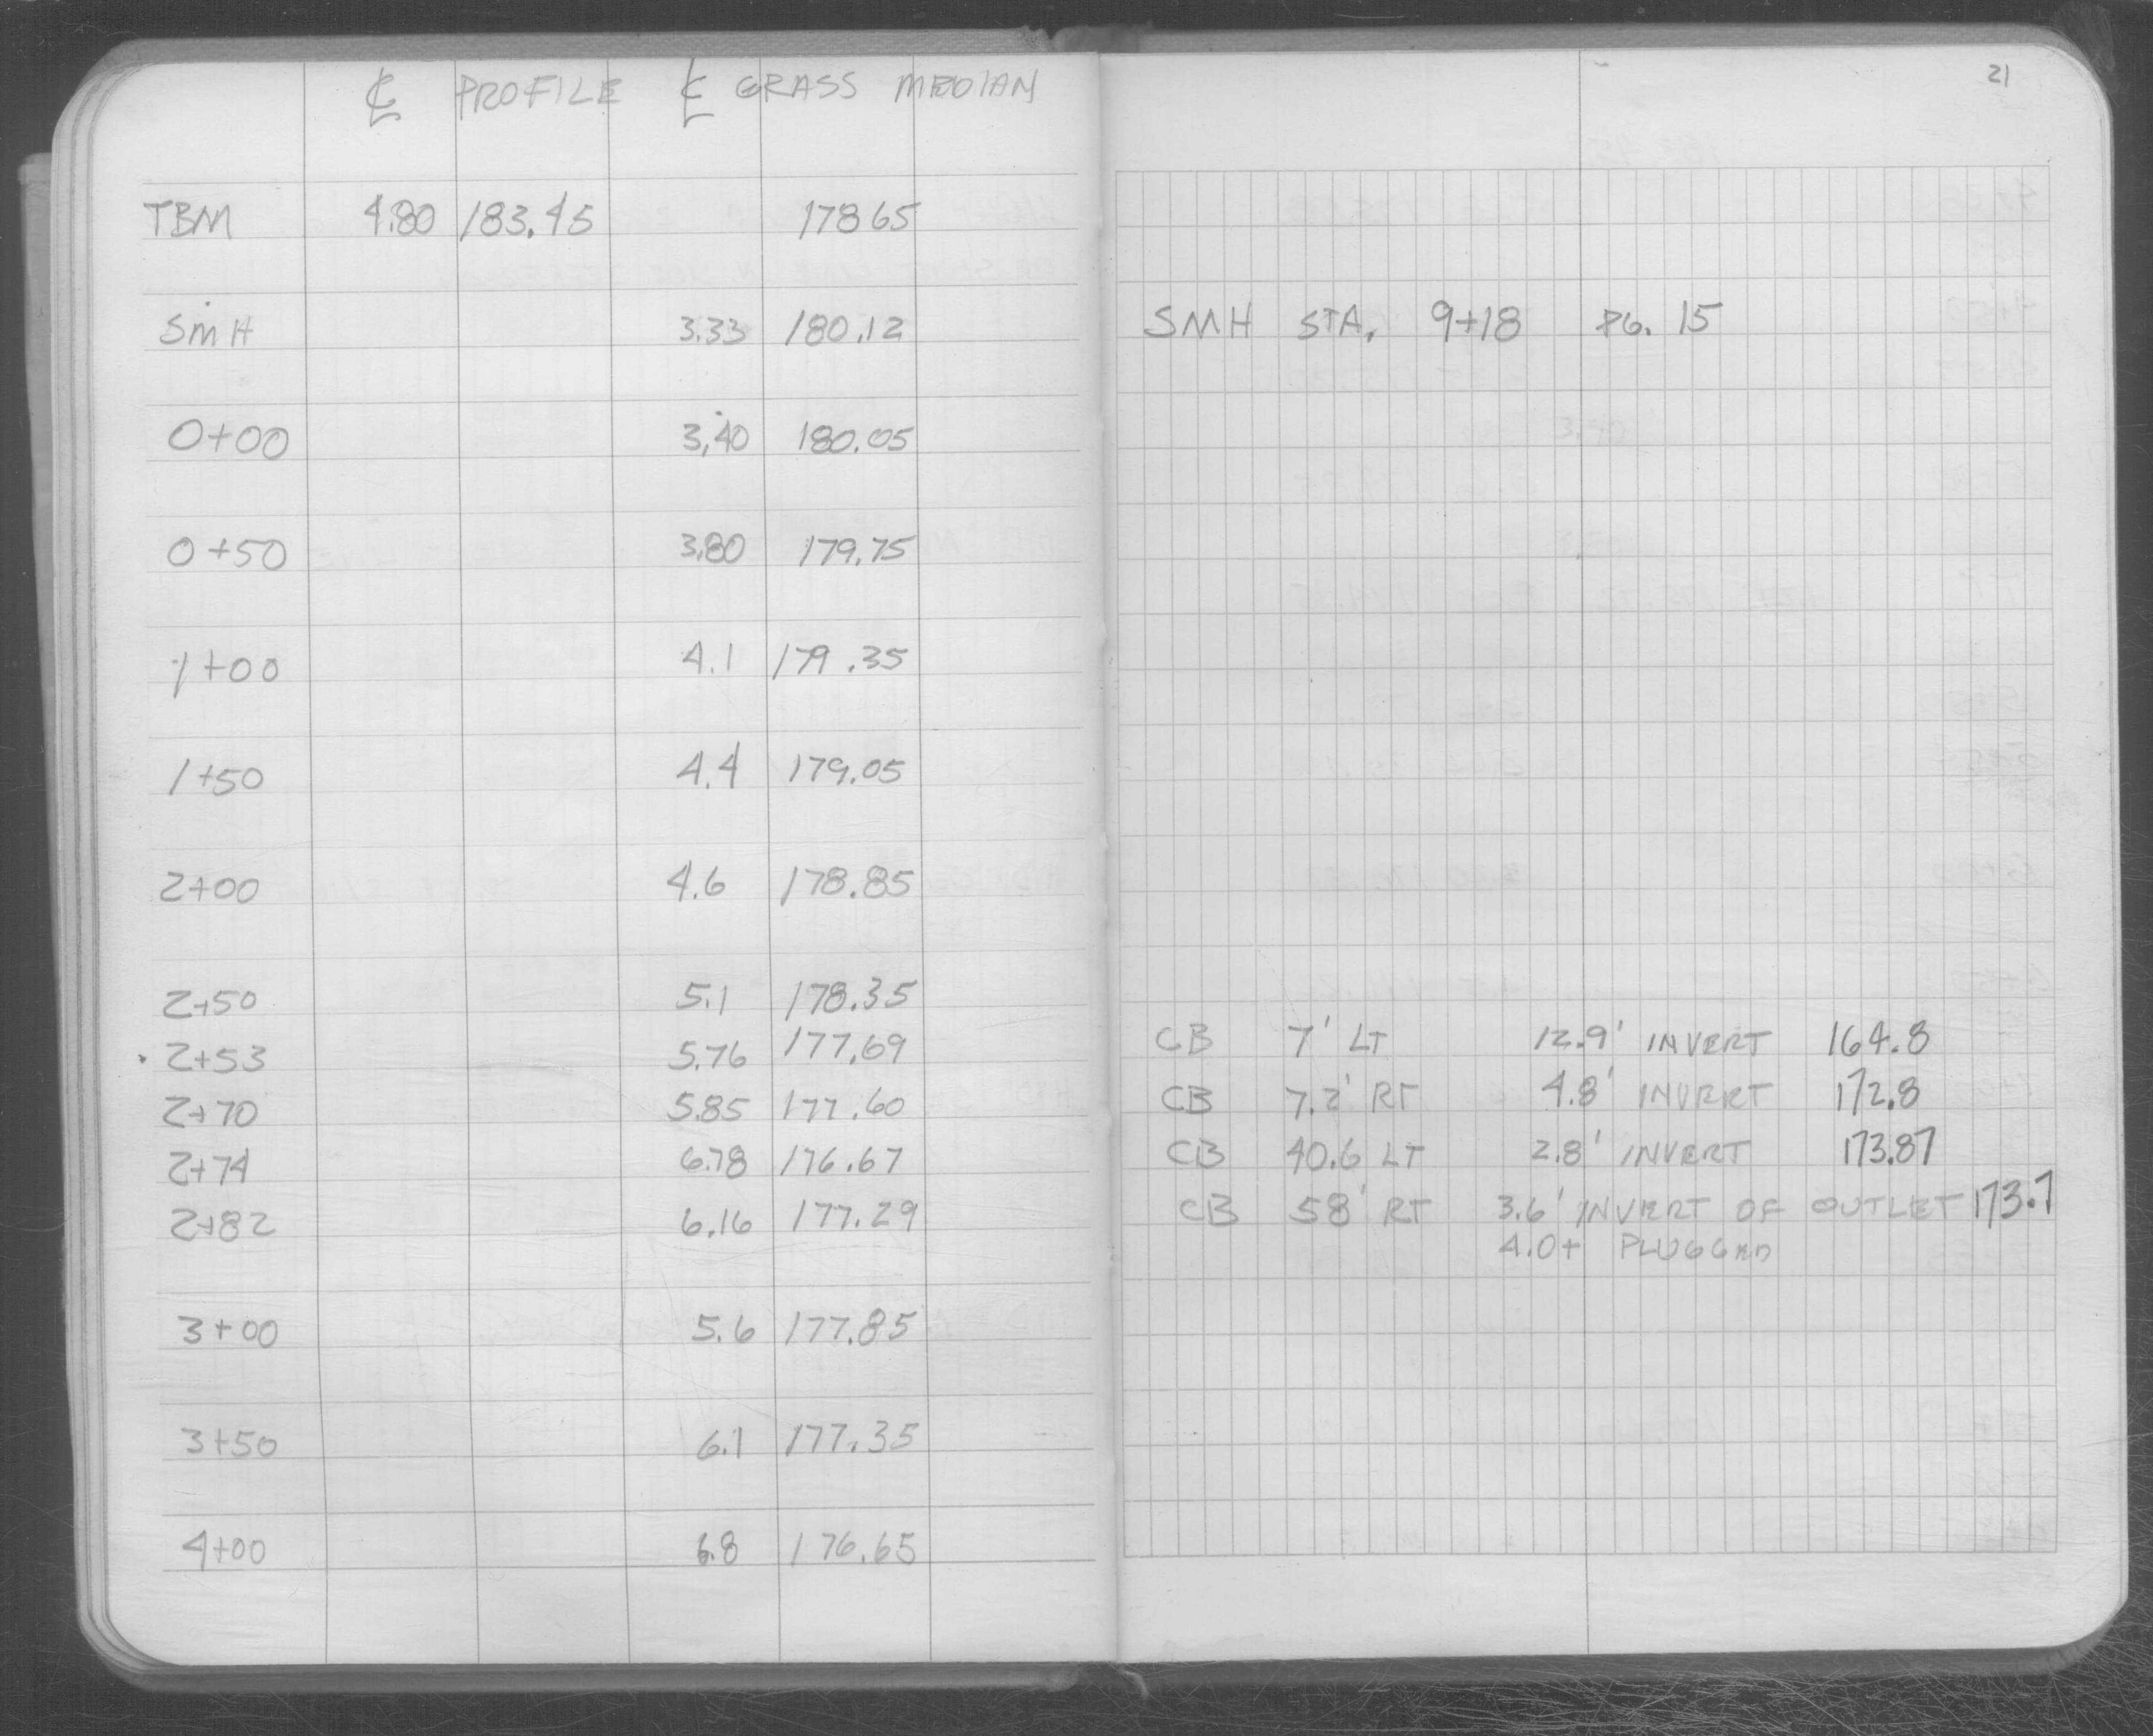 ℄ PROFILE ℄ GRASS MEDIAN
21
TBM 4.80 183.45 178 65
SMH 3.33 180.12 SMH STA. 9+18 PG. 15
0+00 3.40 180.05
0+50 3.80 179.75
1+00 4.1 179.35
1+50 4.4 179.05
2+00 4.6 178.85
2+50 5.1 178.35
2+53 5.76 177.69 CB 7' LT 12.9' INVERT 164.8
2+70 5.85 177.60 CB 7.2' RT 4.8' INVERT 172.8
2+74 6.78 176.67 CB 40.6 LT 2.8' INVERT 173.87
2+82 6.16 177.29 CB 58' RT 3.6' INVERT OF OUTLET 173.7
4.0+ PLUGGED
3+00 5.6 177.85
3+50 6.1 177.35
4+00 6.8 176.65